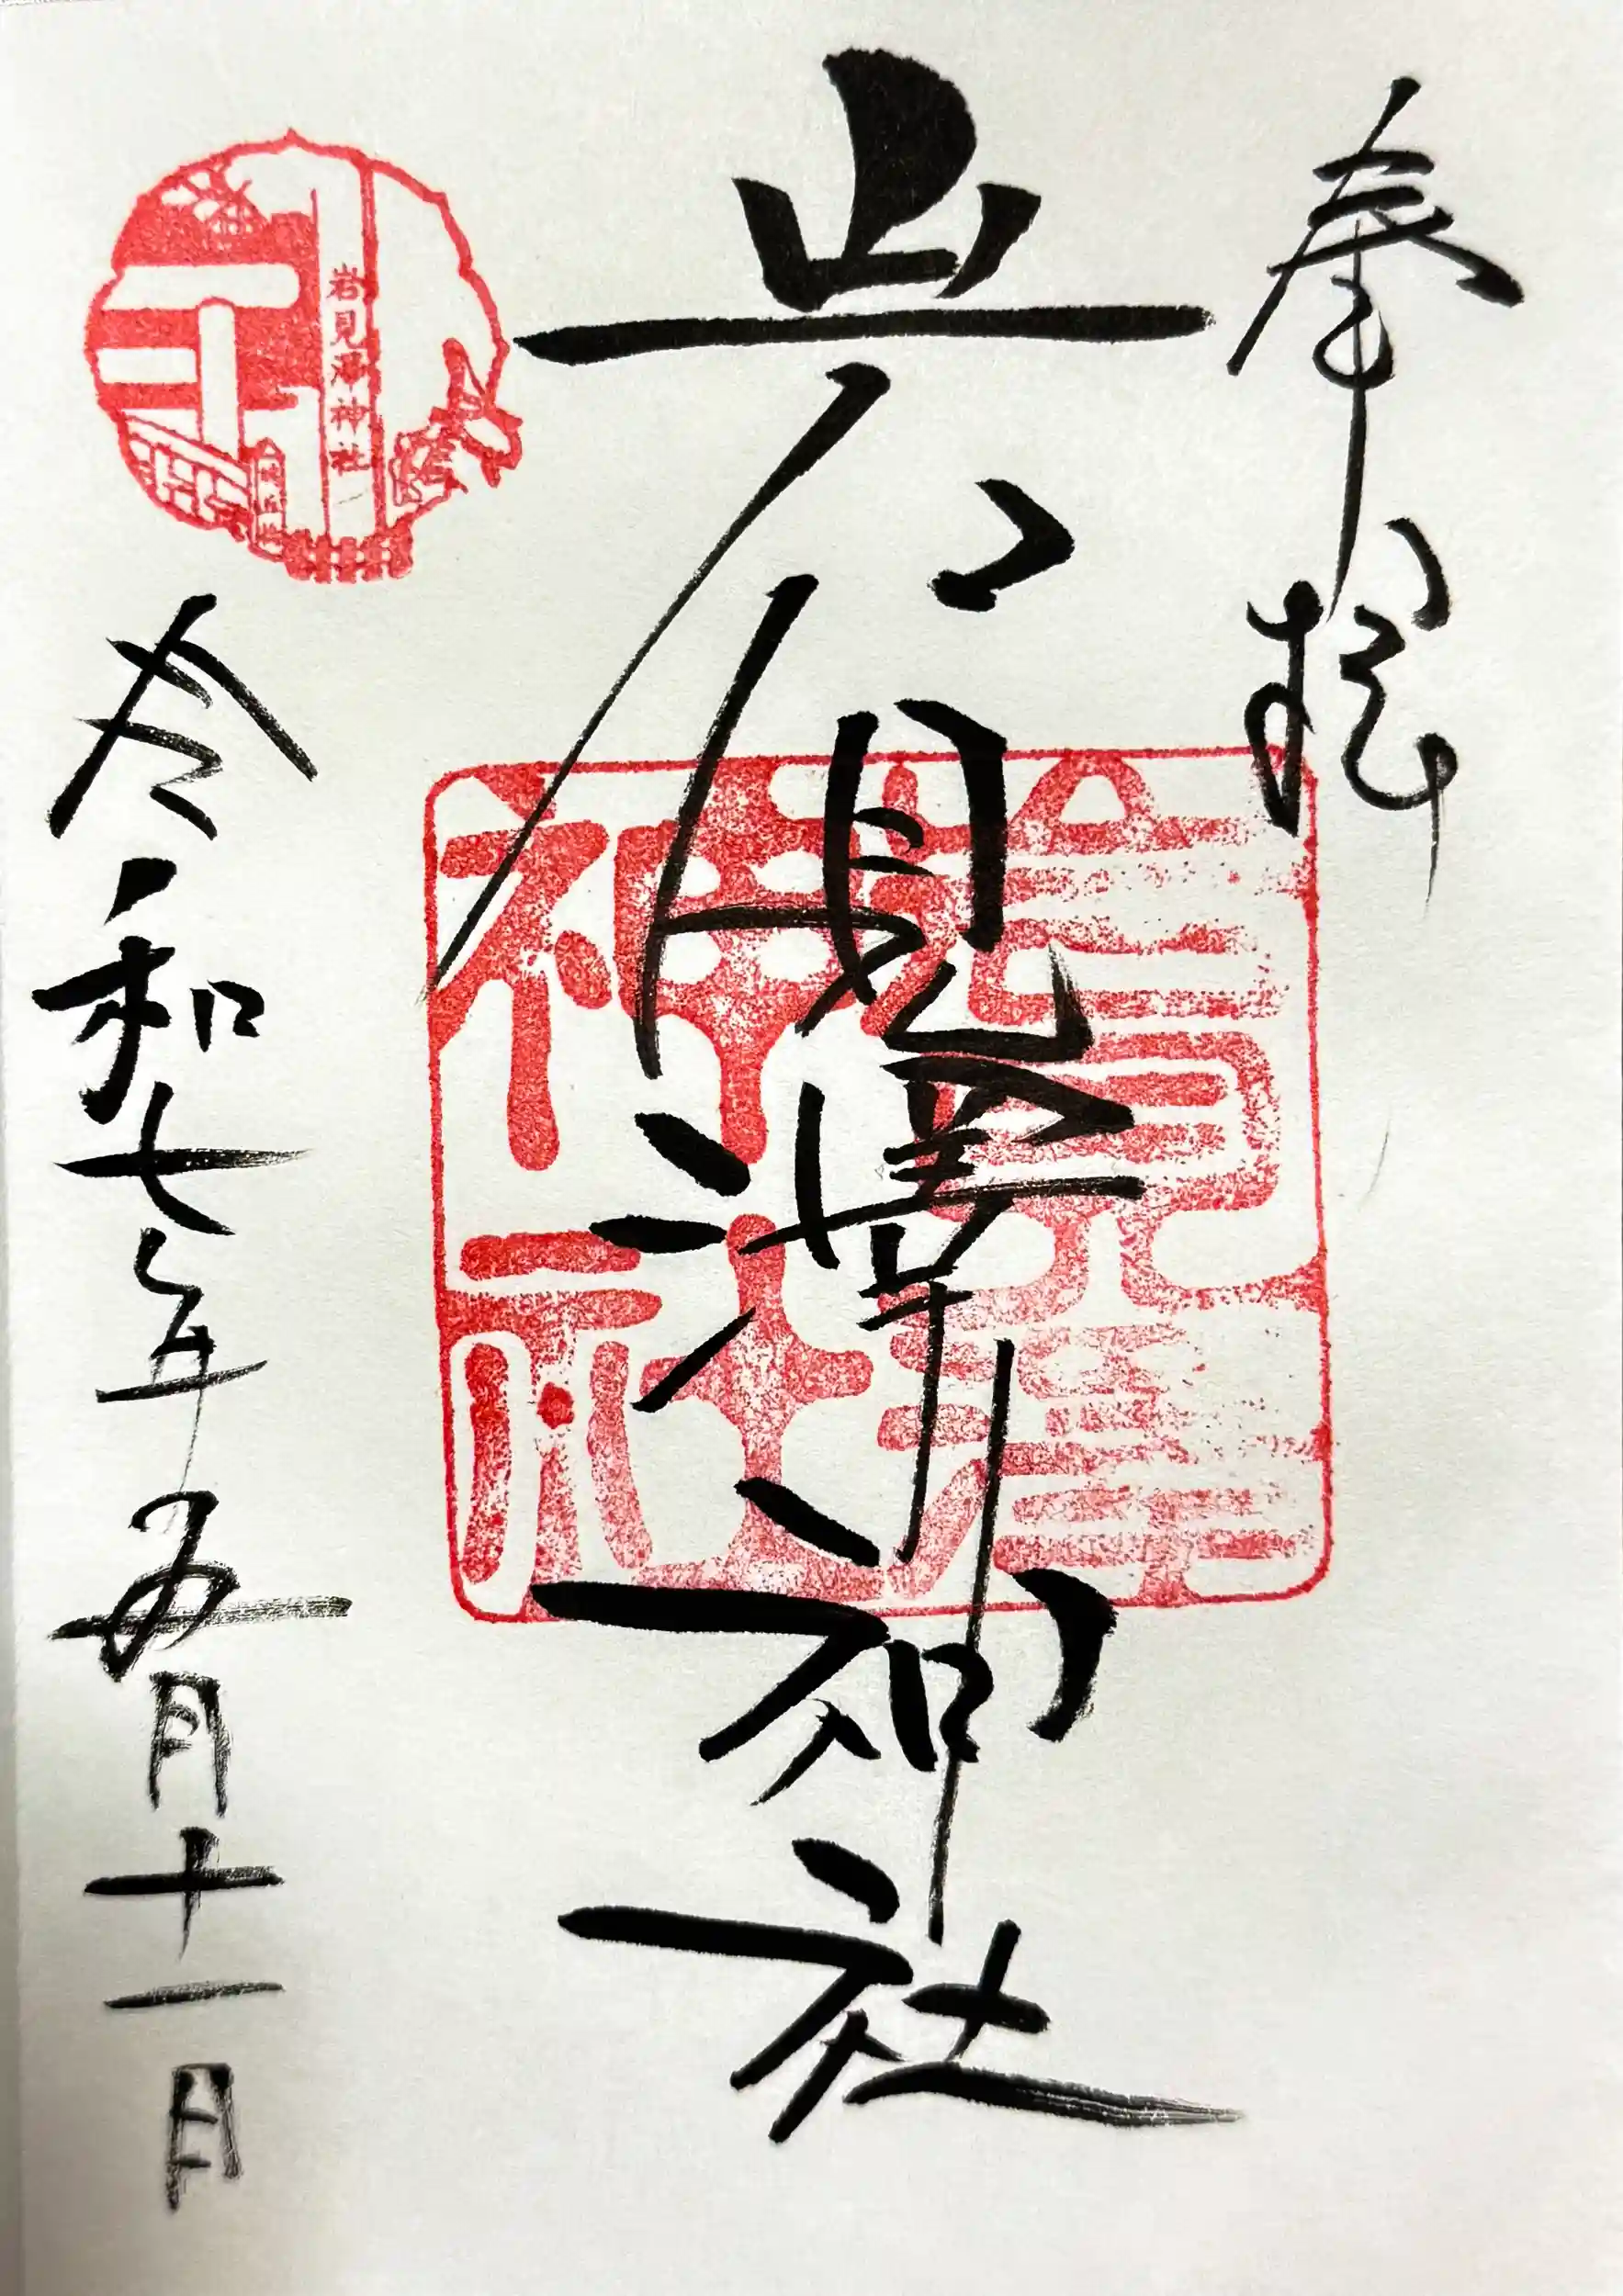 奉拝
岩見澤神社
岩見澤神社
岩見澤神社
令和七年五月十一日